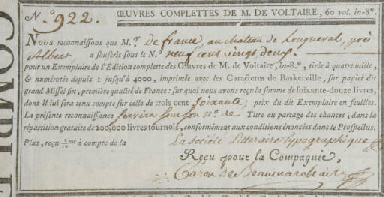 N.º 922.
ŒUVRES COMPLETTES DE M. DE VOLTAIRE, 60 vol. in-8º.
Nous reconnaissons que M.r De france, au chateau de Longueval, près
Albert a souscrit sous le N.º neuf cens vingt deux.
pour un Exemplaire de l'Edition complette des Œuvres de M. de Voltaire, in-8º, tirée à quatre mille,
& numérotée depuis 1 jusqu'à 4000, imprimée avec les Caractères de Baskerville, sur papier dit
grand Messel fin, première qualité de France; sur quoi nous avons reçu la somme de soixante-douze livres,
dont il lui sera tenu compte sur celle de trois cent soixante, prix du dit Exemplaire en feuilles.
La présente reconnaissance servira pour son N.º Titre au partage des chances, dans la
répartition gratuite de 200,000 livres tournois, conformément aux conditions énoncées dans le Prospectus.
Plus, reçu à compte de la La société Littéraire typographique
Reçu pour la Compagnie,
Caron de Beaumarchais
COMPLE